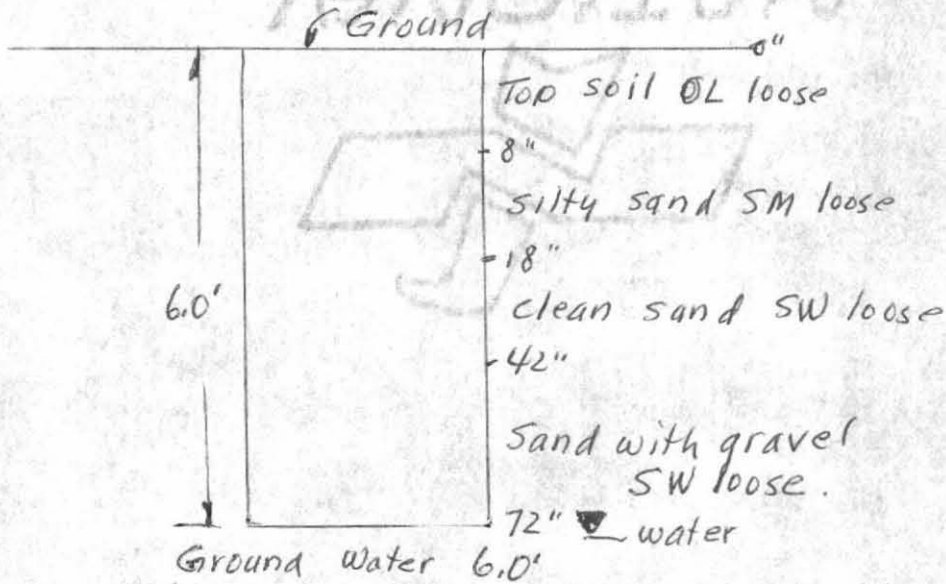 Ground
0"
Top soil OL loose
8"
silty sand SM loose
18"
6.0'
clean sand SW loose
42"
Sand with gravel
SW loose.
72" water
Ground Water 6.0'